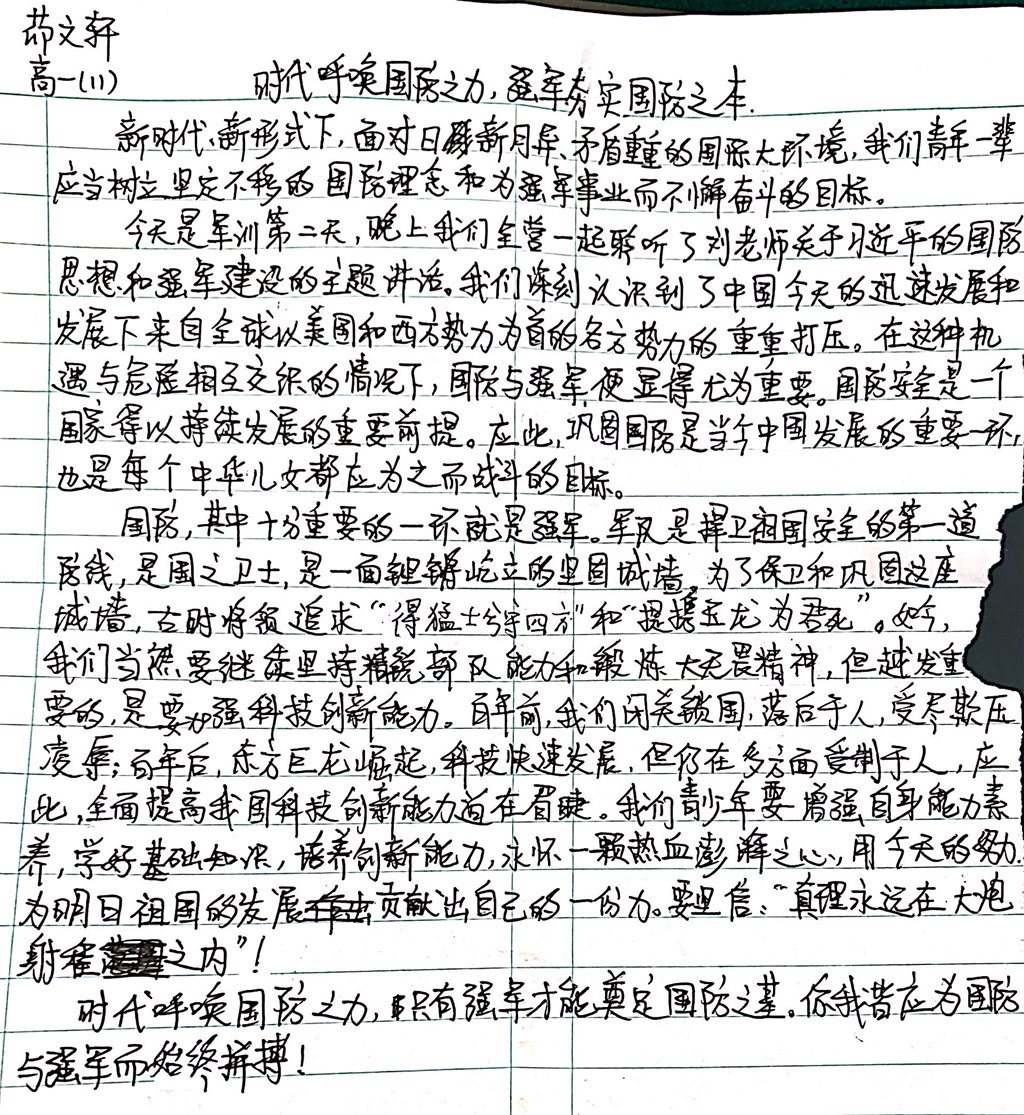 茆文轩
高一(11)
时代呼唤国防之力,强军夯实国防之本.
新时代、新形式下,面对日新月异、矛盾重重的国际大环境,我们青年一辈
应当树立坚定不移的国防理念和为强军事业而不懈奋斗的目标。
今天是军训第二天,晚上我们全营一起聆听了刘老师关于习近平的国防
思想和强军建设的主题讲话。我们深刻认识到了中国今天的迅速发展和
发展下来自全球以美国和西方势力为首的各方势力的重重打压。在这种机
遇与危险相互交织的情况下,国防与强军便显得尤为重要。国防安全是一个
国家得以持续发展的重要前提。应此,巩固国防是当今中国发展的重要一环,
也是每个中华儿女都应为之而战斗的目标。
国防,其中十分重要的一环就是强军。军队是捍卫祖国安全的第一道
防线,是国之卫士,是一面屹立的坚固城墙。为了保卫和巩固这座
城墙,古时将领追求“得猛士兮守四方”和“提携玉龙为君死”。如今,
我们当然要继续坚持精锐部队能力和锻炼大无畏精神,但越发重
要的,是要加强科技创新能力。百年前,我们闭关锁国,落后于人,受尽欺压
凌辱;百年后,东方巨龙崛起,科技快速发展,但仍在多方面受制于人,应
此,全面提高我国科技创新能力迫在眉睫。我们青少年要增强自身能力素
养,学好基础知识,培养创新能力,永怀一颗热血澎湃之心,用今天的努力
为明日祖国的发展贡献出自己的一份力。要坚信:“真理永远在大炮
射程之内”!
时代呼唤国防之力,只有强军才能奠定国防之基。你我皆应为国防
与强军而始终拼搏!